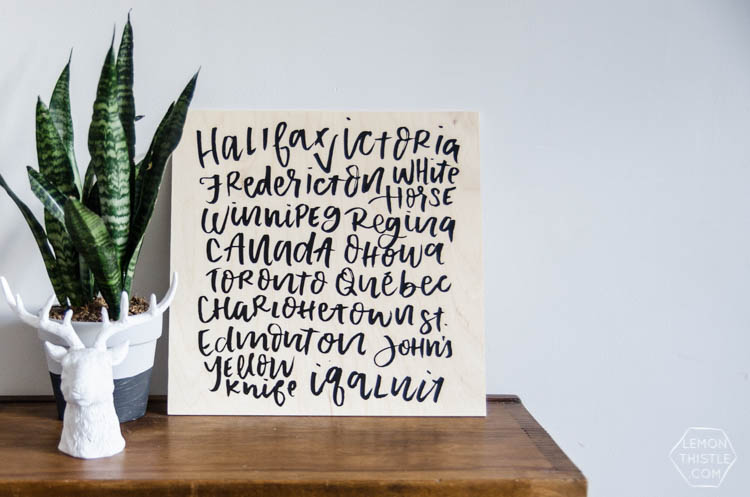 Halifax Victoria
Fredericton WHITE
HORSE
WinniPEg Regina
CANADA Ottawa
TORONTO Québec
CHARlottetown St.
Edmonton JOHN'S
YELLOW
Knife iqaLuit
LEMON
THISTLE
.COM